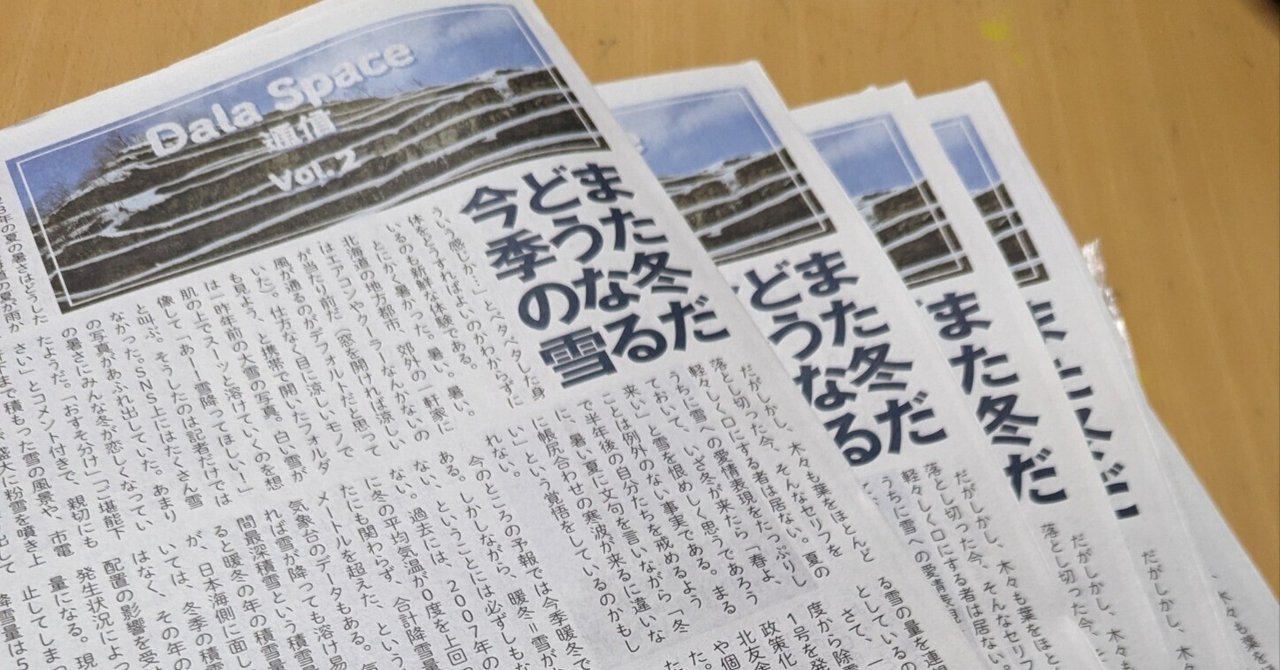 Dala Space
通信
Vol.2
また冬だ
どうなる
今季の雪
とベタベタした身
体をどうすればよいのかわからずに
いるのも新鮮な体験である。
とにかく暑かった。暑い。暑い。
北海道の地方都市、郊外の一軒家に
はエアコンやクーラーなんかないの
が当たり前だ（窓を開ければ涼しい
風が通るのがデフォルトだと思って
いた）。仕方なく目に涼しいモノで
も見よう、と携帯で開いたフォルダ
は一昨年前の大雪の写真。白い雪が
肌の上でスーッと溶けていくのを想
像して「あー、雪降ってほしい！」
と叫ぶ。そうしたのは記者だけでは
なかった。SNS上にはたくさん雪
の写真があふれ出していた。あまり
の暑さにみんな冬が恋しくなってい
たようだ。「おすそ分け」「ご堪能下
さい」とコメント付きで、親切にも
まで積もった雪の風景や、市電
盛大に粉雪を噴き上
年の夏の暑さはどうした
だがしかし、木々も葉をほとんど
落とし切った今、そんなセリフを
軽々しく口にする者は居ない。夏の
うちに雪への愛情表現をたっぷりし
ておいて、いざ冬が来たら「春よ、
来い」と雪を恨めしく思うであろう
ことは例外のない事実である。まる
で半年後の自分たちを戒めるよう
に、暑い夏に文句を言いながら「冬
に帳尻合わせの寒波が来るに違いな
い」という覚悟をしているのかもし
れない。
今のところの予報では今季暖冬で
ある。しかしながら、暖冬＝雪が
ない、ということには必ずしもな
ない。過去には、2007年の
に冬の平均気温が0度を上回
たにも関わらず、合計降雪量
メートルを超えた、という
気象台のデータもある。気
れば雪が降っても溶け易
間最深積雪という積雪量
ると暖冬の年の積雪量
が、日本海側に面し
いては、冬季の積雪
はなく、その年の
配置の影響を受
発生状況によっ
量になる。現
止してしまっ
降雪量は5
る雪の量を連
としている。
さて、一
度から除
政策化
1号を発
北友会
や個
た。
また冬だ
どうなる
だがしかし、木々も葉をほと
落とし切った今、そんなセリフ
軽々しく口にする者は居ない
うちに雪への愛情表現
また冬だ
だがしかし、木々
落とし切った今、
また冬だ
だがしかし、木
木々も葉